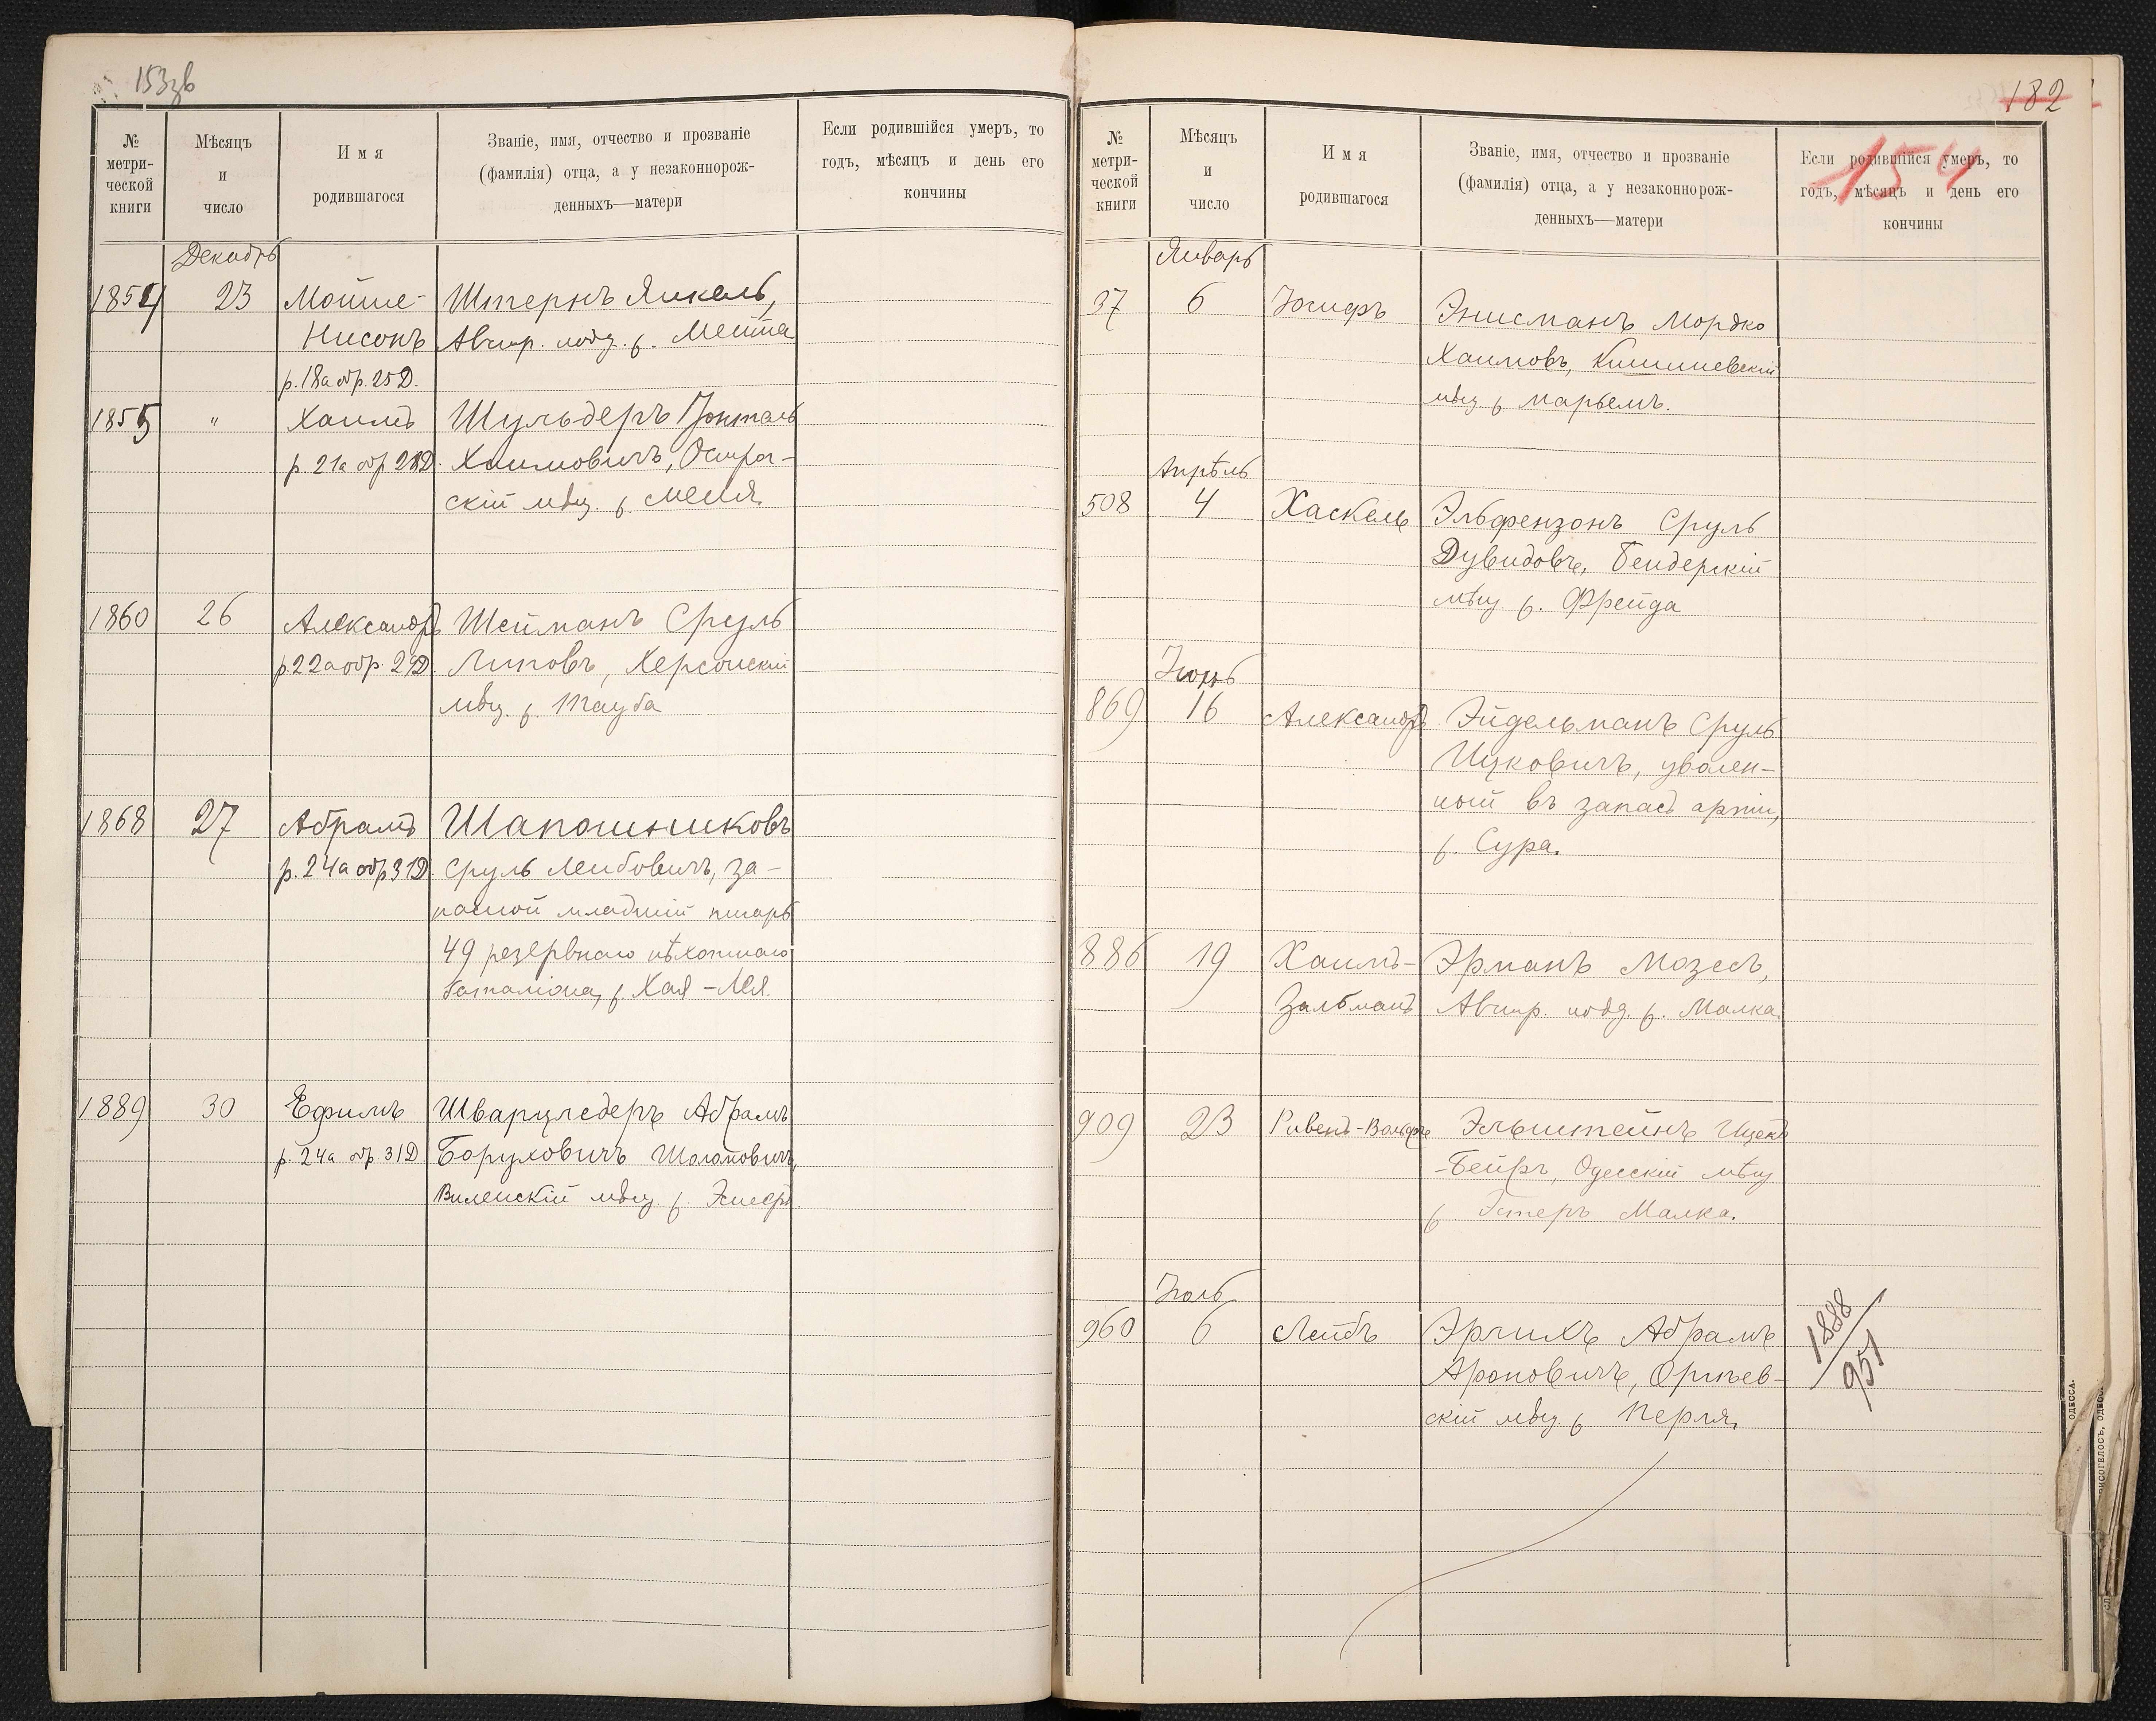 153зв
№
метри-
ческой
книги
Мѣсяцъ
и
число
Имя
родившагося
Званіе, имя, отчество и прозваніе
(фамилія) отца, а у незаконнорож-
денныхъ—матери
Если родившійся умеръ, то
годъ, мѣсяцъ и день его
кончины
Декабрь
1854 23 Мойше- Штернъ Янкель,
Нисонъ Австр. подд. ж. Мента
р. 18а обр. 25Д.
1855 " Хаимъ Шульдеръ
р. 21а обр 28Д. Хаимовичъ,
скій мѣщ. ж.
1860 26 Александръ Шейманъ Сруль
р. 22а обр. 29Д. Липовъ, Херсонскій
мѣщ. ж. Тауба
1868 27 Абрамъ Шапошниковъ
р. 24а обр 31Д. Сруль Лейбовичъ, за-
пасной младшій писарь
49 резервнаго пѣхотнаго
баталіона, ж. Хая-Лея.
1889 30 Ефимъ Шварцледеръ Абрамъ
р. 24а обр. 31Д Боруховичъ Шоломовичъ,
Виленскій мѣщ. ж. Эсѳирь.
182
154
№
метри-
ческой
книги
Мѣсяцъ
и
число
Имя
родившагося
Званіе, имя, отчество и прозваніе
(фамилія) отца, а у незаконнорож-
денныхъ—матери
Если родившійся умеръ, то
годъ, мѣсяцъ и день его
кончины
Январь
37 6 Іосифъ Энисманъ Мордко
Хаимовъ, Кишиневскій
мѣщ ж Марьемъ.
Апрѣль
508 4 Хаскель Эльфензонъ Сруль
Дувидовъ, Бендерскій
мѣщ. ж. Фрейда
Іюнь
869 16 Александръ Эйдельманъ Сруль
Ицковичъ, уволен-
ный въ запасъ арміи,
ж. Сура.
886 19 Хаимъ- Эрманъ Мозесъ,
Зальманъ Австр. подд. ж. Малка.
909 23 Рувенъ-Вольфъ Эльштейнъ Ицекъ
-Бейръ, Одесскій мѣщ
ж Эстеръ Малка.
Іюль
960 6 Лейбъ Эрлихъ Абрамъ
Ароновичъ, Оргѣев-
скій мѣщ. ж Перля.
1888/951
ОДЕССА.